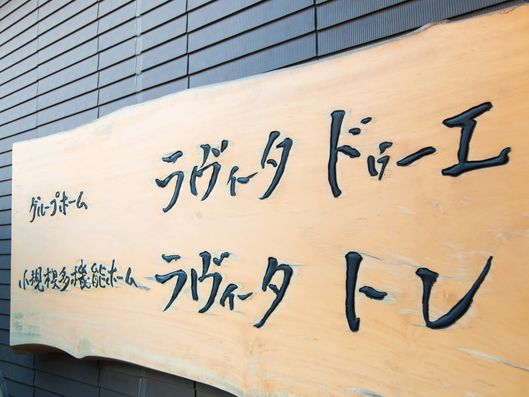 グループホーム ラヴィータ ドゥーエ
小規模多機能ホーム ラヴィータ トレ